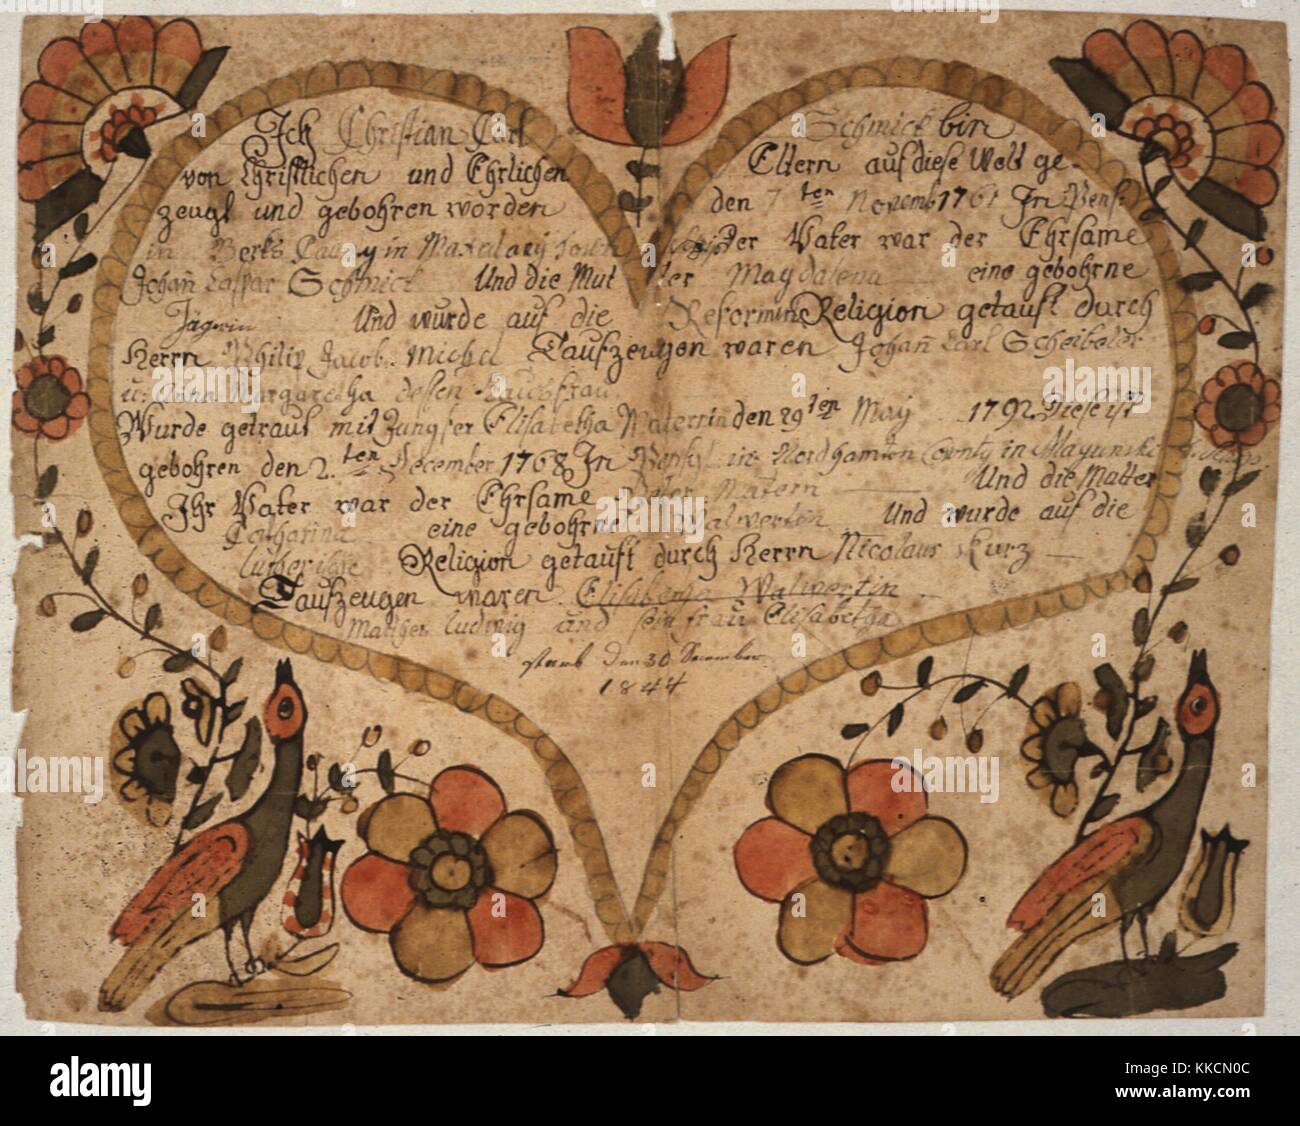 Ich Christian Carl Schmick bin
von Christlichen und Ehrlichen Eltern auf diese Welt ge-
zeugt und gebohren worden den 7ten Novemb 1761 In Pens:
in Berks Caunty in Township Der Vater war der Ehrsame
Johan Caspar Schmick Und die Mutter Magdalena eine gebohrne
Jägerin Und wurde auf die Reformirte Religion getauft durch
Herrn Philip Jacob Michel Taufzeugen waren Johan Carl Scheibeler
u: Anna Margaretha dessen Hausfrau
Wurde getraut mit Jungfer Elisabetha Materrin den 29ten May 1792 Diese ist
gebohren den 2ten December 1768 In Pensyl: in Nordhamton County in
Ihr Vater war der Ehrsame Peter Matern Und die Mutter
Catharina eine gebohrne Walwerten Und wurde auf die
lutherische Religion getauft durch Herrn Nicolaus Kurz
Taufzeugen waren Elisabetha Walwertin
Mathes Ludwig und sein frau Elisabetha
starb Den 30 December
1844
alamy
Image ID: KKCN0C
www.alamy.com